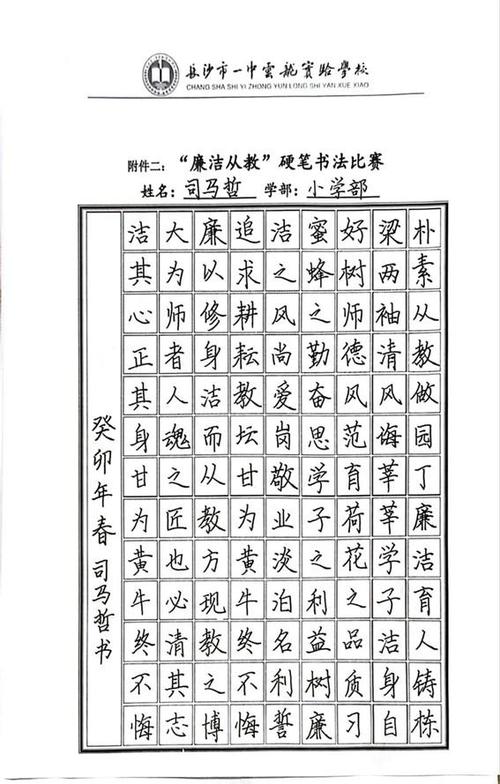 长沙市一中雲龍實驗學校
CHANG SHA SHI YI ZHONG YUN LONG SHI YAN XUE XIAO
附件二：“廉洁从教”硬笔书法比赛
姓名：司马哲 学部：小学部
朴素从教做园丁廉洁育人铸栋
梁两袖清风诲莘莘学子洁身自
好树师德风范育荷花之品质习
蜜蜂之勤奋思学子之利益树廉
洁之风尚爱岗敬业淡泊名利誓
追求耕耘教坛甘为黄牛终不悔
廉以修身洁而从教方现教之博
大为师者人魂之匠也必清其志
洁其心正其身甘为黄牛终不悔
癸卯年春司马哲书